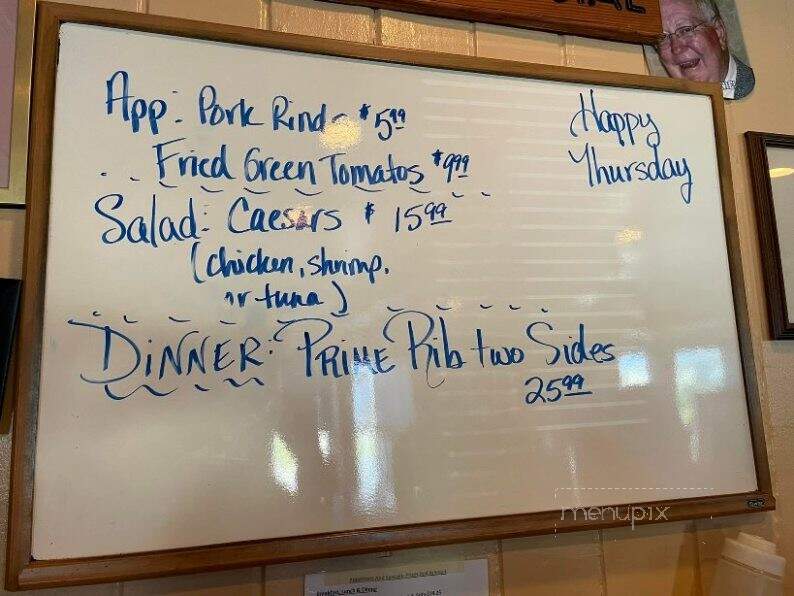 App: Pork Rinds $5.99
Fried Green Tomatos $9.99
Salad: Caesars $15.99
(chicken, shrimp,
or tuna)
DINNER: PRIME Rib two Sides
25.99
Happy
Thursday
menupix